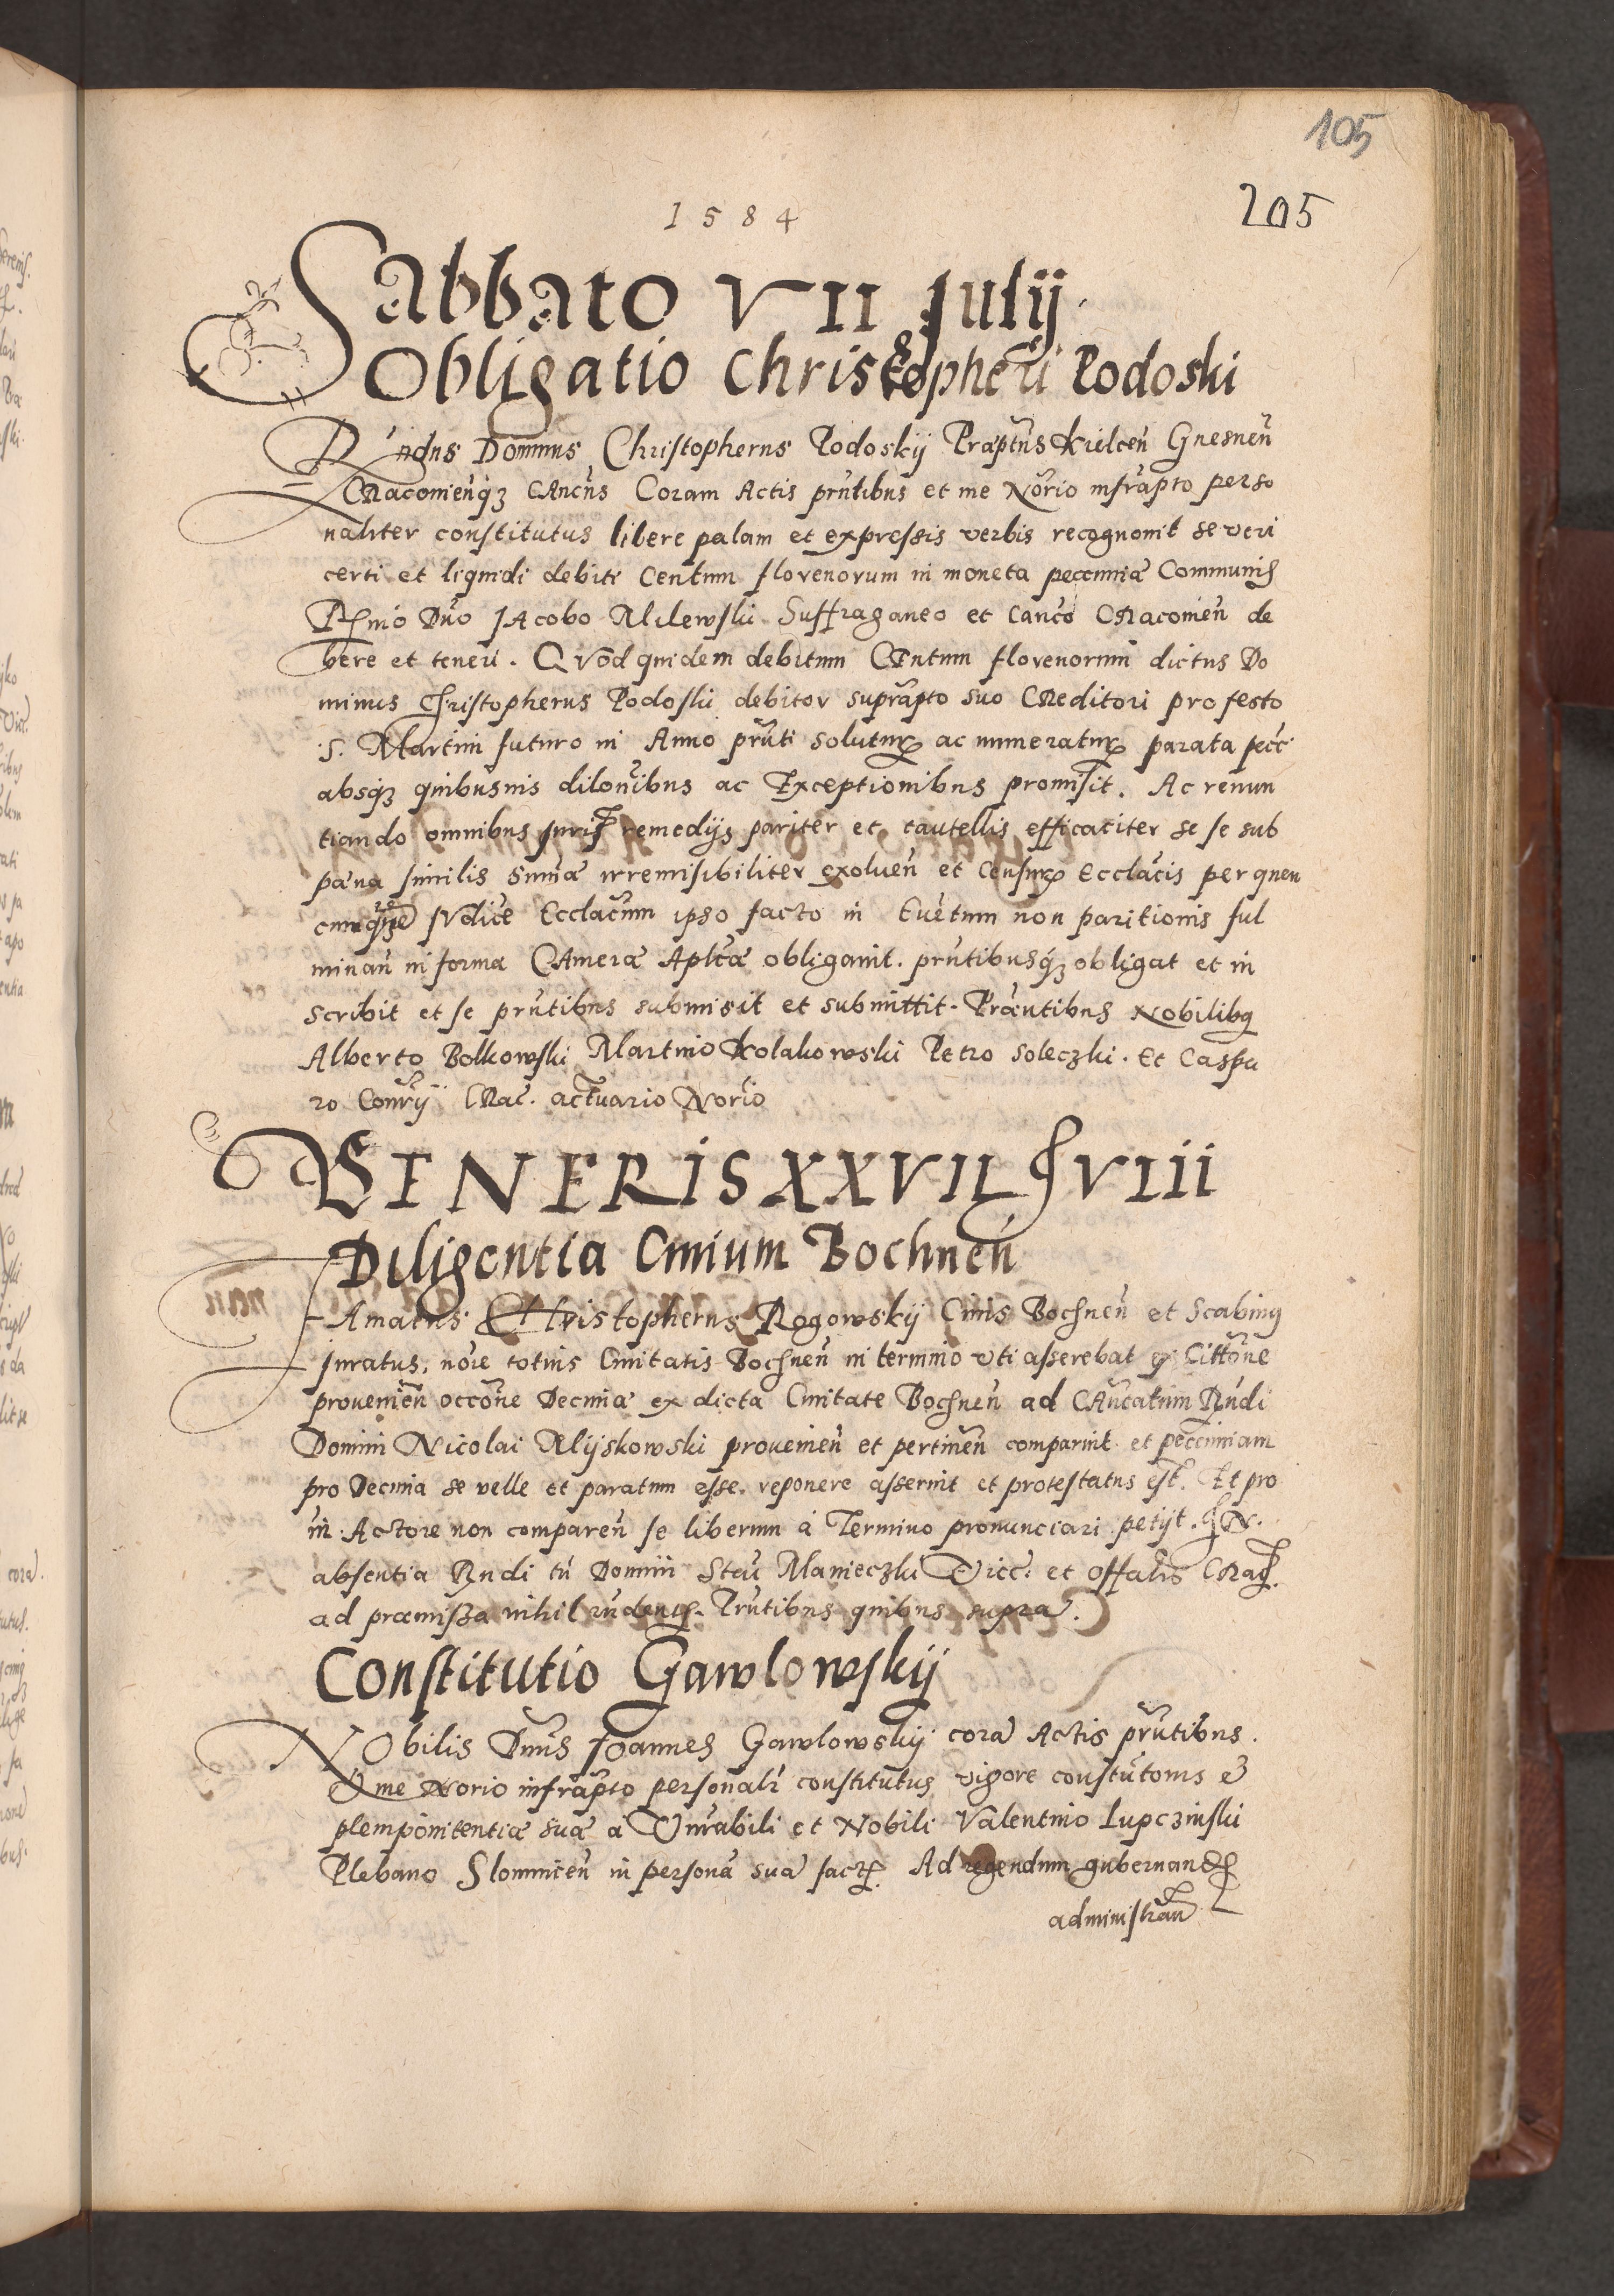 105
1584
205
Sabbato VII Julij.
Obligatio Christopheri Podoski
Rndus Dominus Christopherus Podoskij Præptus Kielcen̄ Gnesnen̄
CRacouien̄qz CAncus Coram Actis pn̄tibus et me Norio infrapto perso
naliter constitutus libere palam et expressis verbis recognouit se veri
certi et liquidi debiti Centum florenorum in moneta peccuniæ Communis
Rmo Dno JAcobo Milewski Suffraganeo et Canco CRacouien̄ de
bere et teneri. QVod quidem debitum CEntum florenorum dictus Do
minus Christopherus Podoski debitor suprapto suo CReditori pro festo
S. Martini futuro in Anno pn̄ti soluturum ac numeraturum parata pecc
absqz quibusuis dilonibus ac Exceptionibus promisit. Ac renun
tiando omnibus juris remedijs pariter et cautellis efficaciter se se sub
pæna similis summæ irremisibiliter exoluen̄ et Censurum Ecclacis per quen
cunque JVdice Ecclacum ipso facto in Euetum non paritionis ful
minan̄ in forma CAmeræ Aplcæ obligauit. pn̄tibusqz obligat et in
scribit et se pn̄tibus submisit et submittit. Præntibus Nobilibus
Alberto Bolkowski Martino Kolakowski Petro Soleczki. Et Caspa
ro Conrij CRac. actuario Norio
VENERIS XXVII eiusdem
Diligentia Ciuium Bochnen̄
FAmatus CHristopherus Rogowskij Ciuis Bochnen̄ et Scabinus
Juratus, noie totius Ciuitatis Bochnen̄ in termino vti asserebat ex Cittone
prouenien̄ occone Decimæ ex dicta Ciuitate Bochnen̄ ad CAncatum Rndi
Domini Nicolai Mijskowski prouenien̄ et pertinen̄ comparuit et peccuniam
pro Decima se velle et paratum esse. reponere asseruit et protestatus est. Et pro
in Actore non comparen̄ se liberum à Termino pronunciari petijt. In
absentia Rndi tn̄ Domini Stai Manieczki Vicc. et Offalis CRac.
ad præmissa nihil rn̄dentis. Pn̄tibus quibus supra.
Constitutio Gawlowskij
NObilis Dnus Joannes Gawlowskij cora Actis pn̄tibus.
et me Norio infrapto personalr constitutus vigore constutonis et
plempoitentiæ suæ à Vnrabili et Nobili Valentino Lupczinski
Plebano Slomnicen̄ in persona sua factum. Ad regendum gubernandum
administran̄